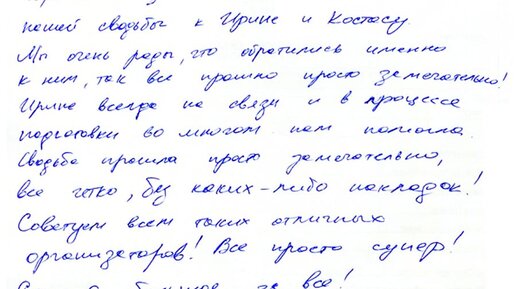 нашей свадьбы к Ирине и Костасу
Мы очень рады, что обратились именно
к ним, так все прошло просто замечательно!
Ирина всегда на связи и в процессе
подготовки во многом нам помогла.
Свадьба прошла просто замечательно,
все четко, без каких-либо накладок!
Советуем всем таких отличных
организаторов! Все просто супер!
за все!